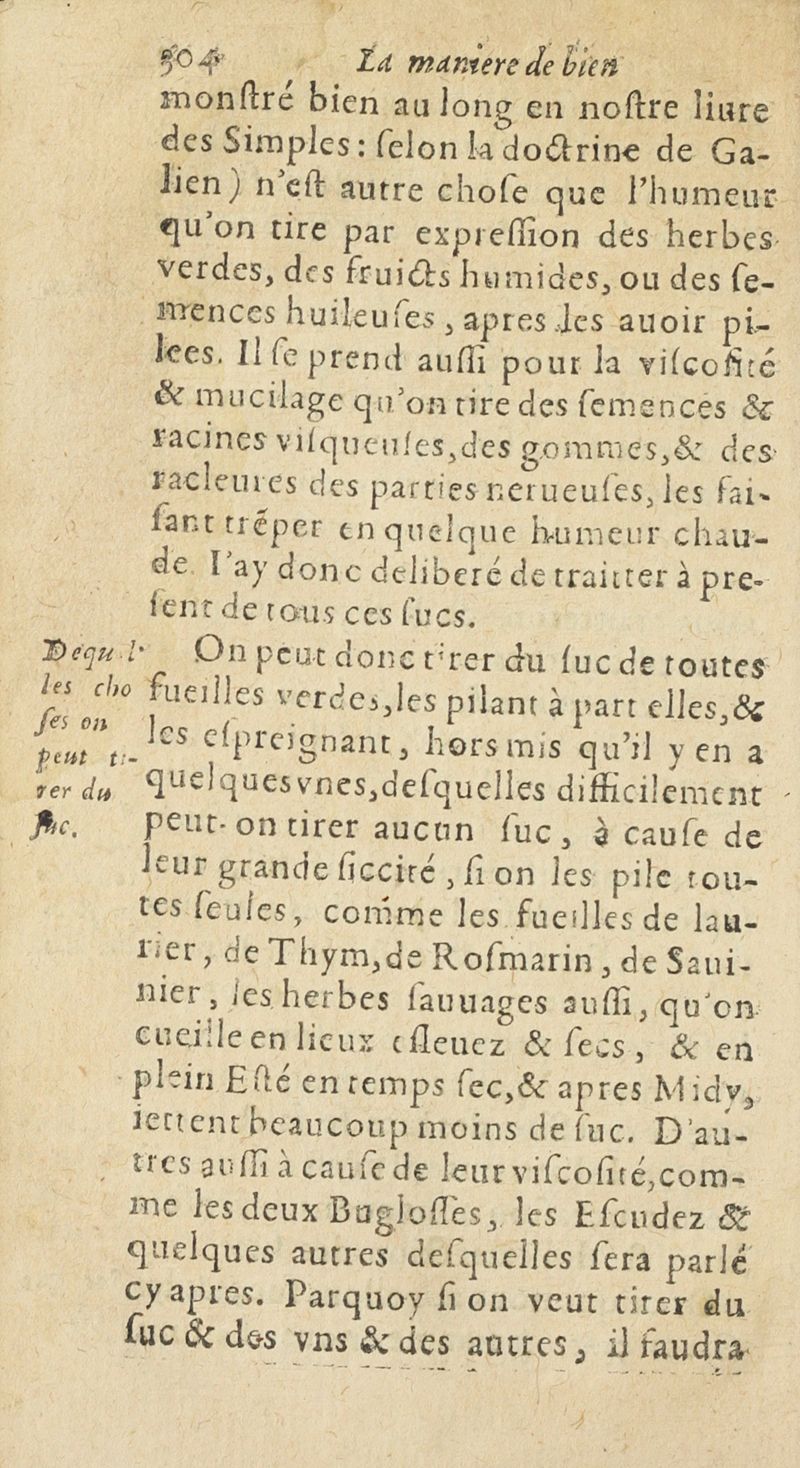 504 La maniere de bien
monſtré bien au long en noſtre liure
des Simples: ſelon la doctrine de Ga-
lien) n'eſt autre choſe que l'humeur
qu'on tire par expreſſion des herbes
verdes, des fruicts humides, ou des ſe-
mences huileuſes, apres les auoir pi-
lees. Il ſe prend auſſi pour la viſcoſité
& mucilage qu'on tire des ſemences &
racines viſqueuſes, des gommes, & des
racleures des parties nerueuſes, les fai-
ſant trẽper en quelque humeur chau-
de. I'ay donc deliberé de traicter à pre-
ſent de tous ces ſucs.
De qu l-
les cho
ſes on
peut ti-
rer du
ſuc.
On peut donc tirer du ſuc de toutes
fueilles verdes, les pilant à part elles, &
les eſpreignant, hors mis qu'il y en a
quelques vnes, deſquelles difficilement
peut-on tirer aucun ſuc, à cauſe de
leur grande ſiccité, ſi on les pile tou-
tes ſeules, comme les fueilles de lau-
rier, de Thym, de Roſmarin, de Saui-
nier, les herbes ſauuages auſſi, qu'on
cueille en lieux eſleuez & ſecs, & en
plein Eſté en temps ſec, & apres Midy,
iettent beaucoup moins de ſuc. D'au-
tres auſſi à cauſe de leur viſcoſité, com-
me les deux Bugloſſes, les Eſcudez &
quelques autres deſquelles ſera parlé
cy apres. Parquoy ſi on veut tirer du
ſuc & des vns & des autres, il faudra